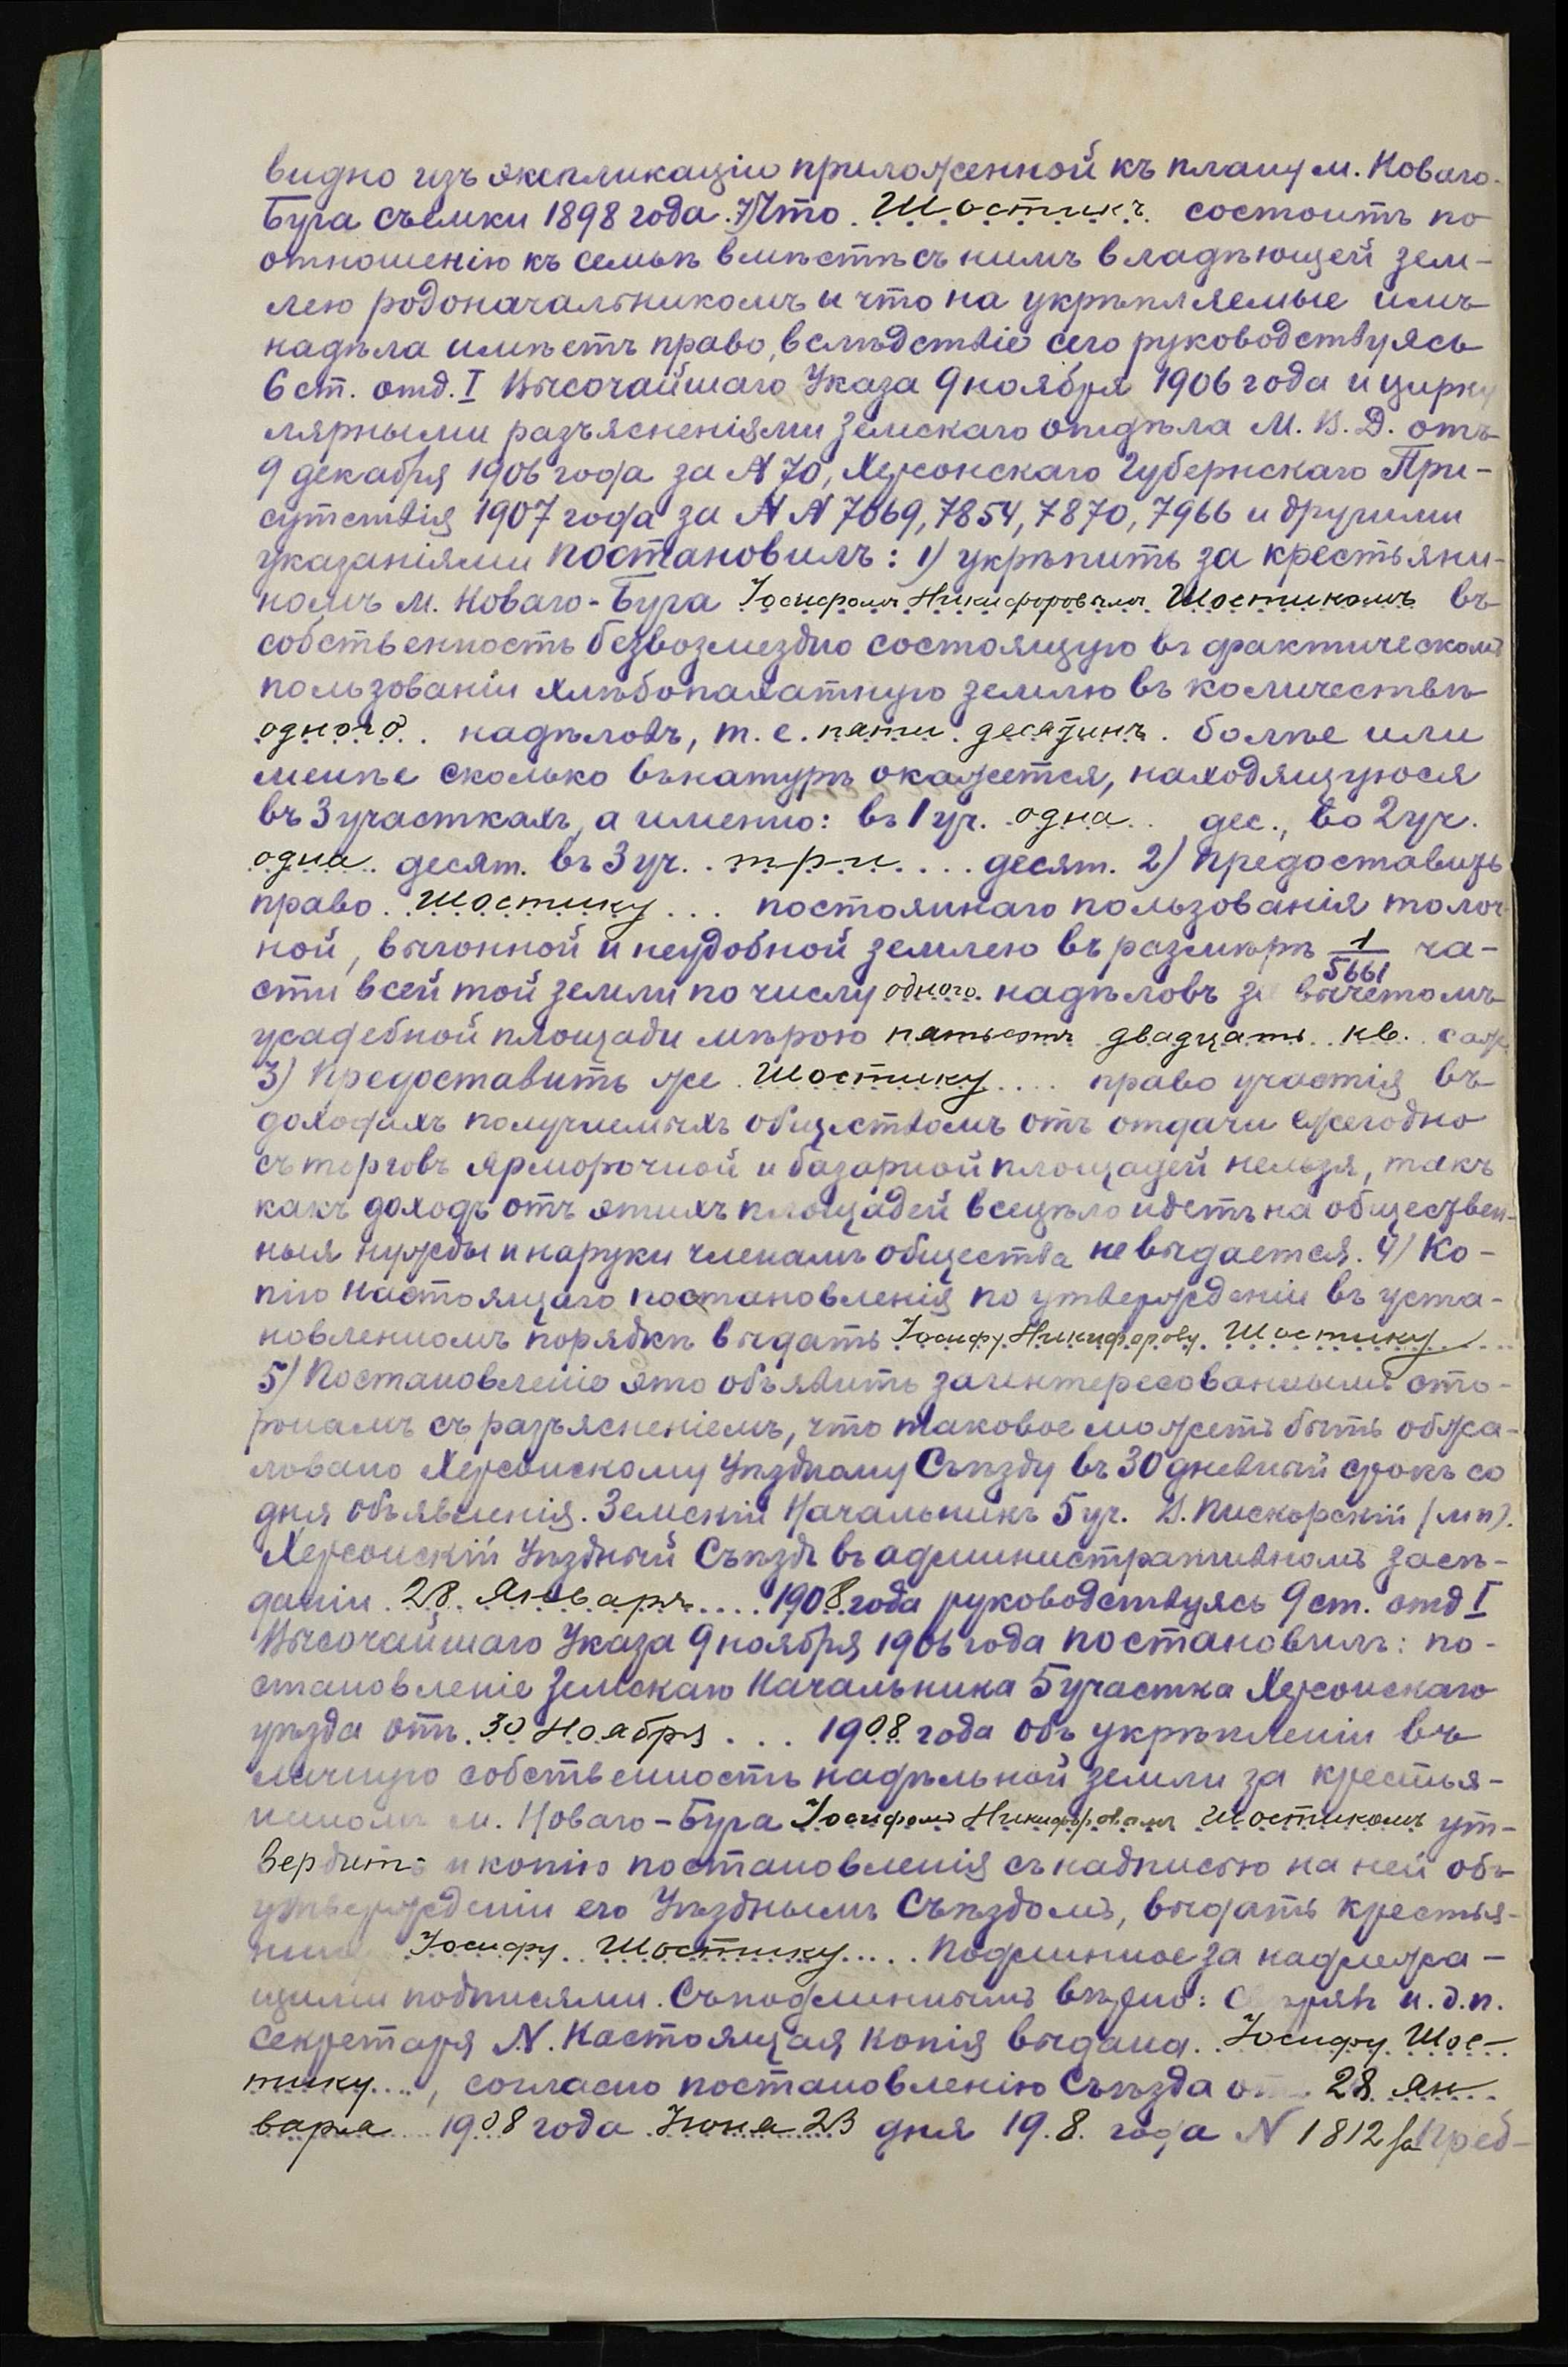 видно изъ экспликаціи приложенной къ плану м. Новаго-
Буга съемки 1898 года. 7) Что Шостикъ состоитъ по
отношенію къ семьѣ вмѣстѣ съ нимъ владѣющей зем-
лею родоначальникомъ и что на укрѣпляемые имъ
надѣла имѣетъ право, вслѣдствіе сего руководствуясь
6 ст. отд. I Высочайшаго Указа 9 ноября 1906 года и цирку
лярными разъясненіями Земскаго отдѣла М. В. Д. отъ
9 декабря 1906 года за N 70, Херсонскаго Губернскаго При-
сутствія 1907 года за N N 7069, 7854, 7870, 7966 и другими
указаніями постановилъ: 1) укрѣпить за крестьяни-
номъ м. Новаго-Буга Іосифомъ Никифоровымъ Шостикомъ въ
собственность безвозмездно состоящую въ фактическомъ
пользованіи хлѣбопахатную землю въ количествѣ
одного надѣловъ, т. е. пяти десятинъ болѣе или
менѣе сколько въ натурѣ окажется, находящуюся
въ 3 участкахъ, а именно: въ 1 уч. одна дес., во 2 уч.
одна десят. въ 3 уч. три десят. 2) Предоставить
право Шостику постояннаго пользованія толоч-
ной, выгонной и неудобной землею въ размѣрѣ 1/5661 ча-
сти всей той земли по числу одного надѣловъ за вычетомъ
усадебной площади мѣрою пятьсотъ двадцать кв. саж.
3) Предоставить же Шостику право участія въ
доходахъ получаемыхъ обществомъ отъ отдачи ежегодно
съ торговъ ярморочной и базарной площадей нельзя, такъ
какъ доходъ отъ этихъ площадей всецѣло идетъ на обществен-
ныя нужды и на руки членамъ общества не выдается. 4) Ко-
пію настоящаго постановленія по утвержденіи въ уста-
новленномъ порядкѣ выдать Іосифу Никифорову Шостику
5) Постановленіе это объявить заинтересованнымъ сто-
ронамъ съ разъясненіемъ, что таковое можетъ быть обжа-
ловано Херсонскому Уѣздному Съѣзду въ 30 дневный срокъ со
дня объявленія. Земскій Начальникъ 5 уч. Пискорскій (мп).
Херсонскій Уѣздный Съѣздъ въ административномъ засѣ-
даніи 28 Января 1908 года руководствуясь 9 ст. отд I
Высочайшаго Указа 9 ноября 1906 года постановилъ: по-
становленіе Земскаго Начальника 5 участка Херсонскаго
уѣзда отъ 30 Ноября 1908 года объ укрѣпленіи въ
личную собственность надѣльной земли за крестья-
ниномъ м. Новаго-Буга Іосифомъ Никифоровымъ Шостикомъ ут-
вердить и копію постановленія съ надписью на ней объ
утвержденіи его Уѣзднымъ Съѣздомъ, выдать крестья-
нину Іосифу Шостику Подлинное за надлежа-
щими подписями. Съ подлиннымъ вѣрно: и. д. п.
Секретаря N. Настоящая копія выдана Іосифу Шос-
тику, согласно постановленію Съѣзда отъ 28 ян
варя 1908 года Іюня 23 дня 19.8. года N 1812 за Пред-